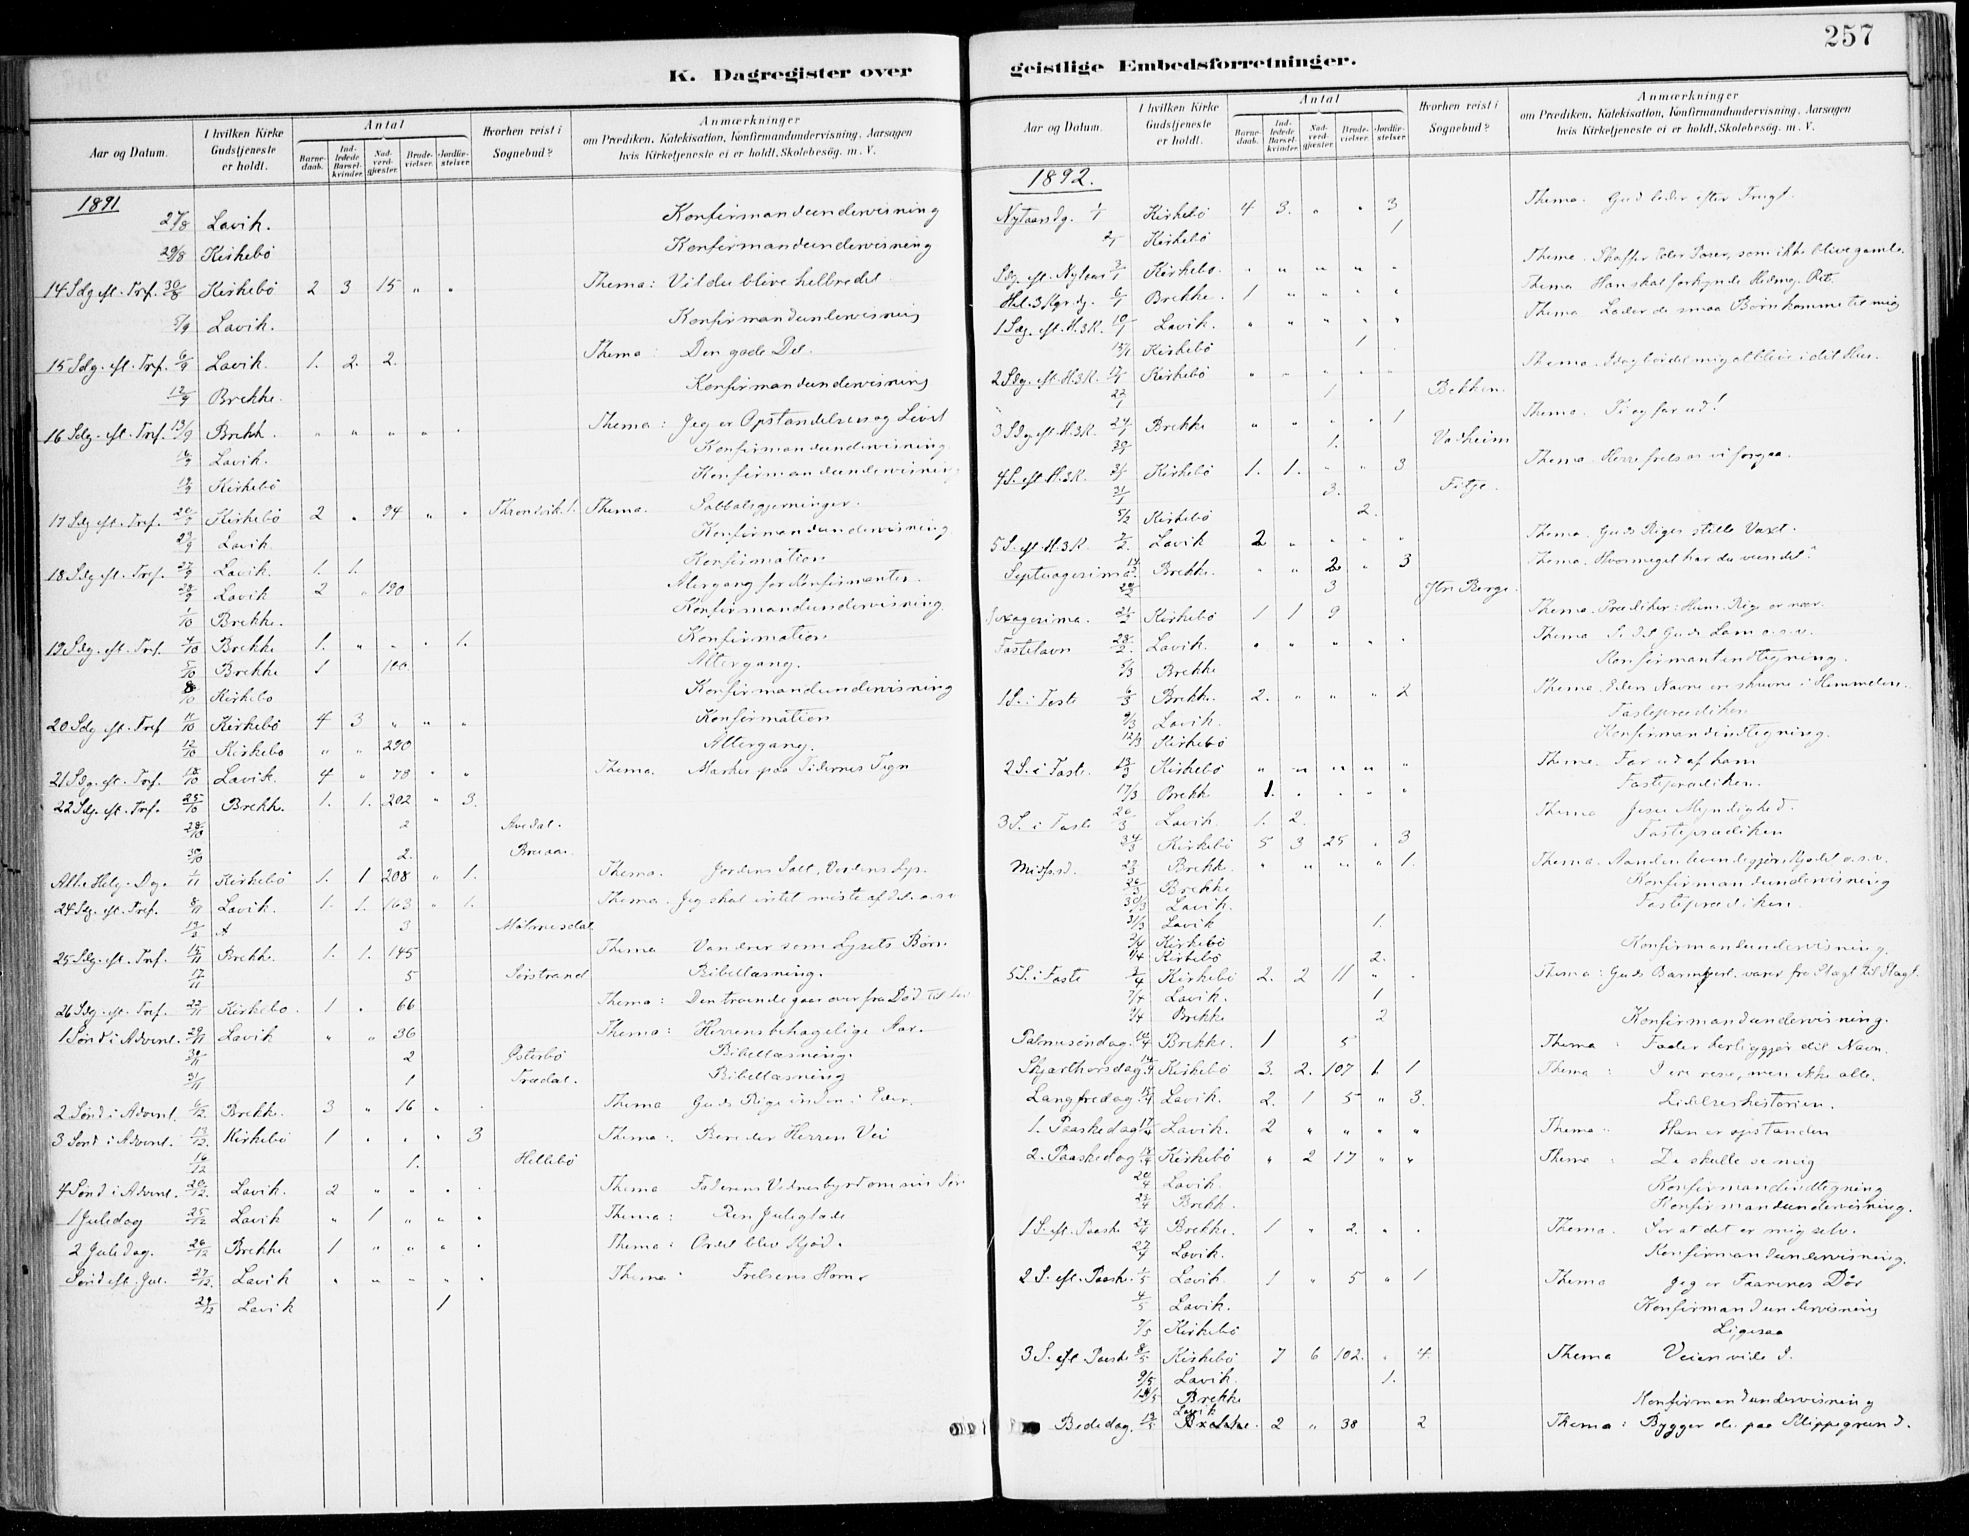 257
K. Dagregister over
Aar og Datum.
I hvilken Kirke Gudstjeneste er holdt.
Antal
Barnedaab.
Indledede Barselkvinder.
Nadverdgjæster.
Brudevielser.
Jordfæstelser.
Hvorhen reist i Sognebud?
Anmærkninger
om Prædiken, Katekisation, Konfirmandundervisning, Aarsagen
hvis Kirketjeneste ei er holdt, Skolebesög. m. V.
1891
27/8 Lavik. Konfirmandundervisning
29/8 Kirkebö Konfirmandundervisning
14 Sdg eft. Tref. 30/8 Kirkebö 2 3 15 " " Thema: Vil du blive helbredet.
5/9 Lavik. Konfirmandundervisning
15 Sdg. eft. Tref. 6/9 Lavik. 1. 2. 2. Thema: Den gode Del.
12/9 Brekke. Konfirmandundervisning
16 Sdg. eft. Tref. 13/9 Brekk. " " " " " Thema: Jeg er Opstandelsen og Livet
Lavik. Konfirmandundervisning
19/9 Kirkebö Konfirmandundervisning
17 Sdg eft. Tref. 20/9 Kirkebö 2 " 94 " " Thema. Sabbatsgjerninger.
Lavik Konfirmandundervisning
18 Sdg eft. Tref. 27/9 Lavik. 1. 1. Konfirmation
28/9 Lavik 2 " 190 Altergang for Konfirmanter.
1/10 Brekke. Konfirmandundervisning
19 Sdg. eft. Tref. 4/10 Brekke 1. " " " 1. Konfirmation
5/10 Brekke 1 100 Altergang.
8/10 Kirkebö Konfirmandundervisning
20 Sdg eft. Tref 11/10 Kirkebö 4 3 " " " Konfirmation
12/10 Kirkebö " " 290 Altergang.
21 Sdg. eft. Tref. 18/10 Lavik. 4 " 78 " " Thema. Mærker paa Tidernes Tegn
22 Sdg. eft. Tref. 25/10 Brekke. 1. 1. 202 " 3.
28/10 2 Avedal.
30/10 2.
Alle Helg. Dg. 1/11 Kirkebö 1. 1 208 " 1. Thema. Jordens Salt, Verdens Lys.
24 Sdg. eft. Tref. 8/11 Lavik. 1. 1. 163 " 1. Thema. Jeg skal intet miste af det o.s.v
3
25 Sdg. eft. Tref. 15/11 Brekke. 1. 1. 145 Thema Vandrer som Lysets Børn.
17/11 5 Sørstrand Bibellæsning.
26 Sdg. eft. Tref. 22/11 Kirkebö. 1 " 66 Thema: Den troende gaar over fra Død til Liv
1 Sønd i Advent. 29/11 Lavik " " 36 Thema: Herrens behagelige Aar.
30/11 2 Østerbö Bibellæsning.
31/11 1 Trædal. Bibellæsning
2 Sønd i Advent. 6/12 Brekke. 3 " 16 " " Thema Guds Rige inden i Eder.
3 Sønd i Advent. 13/12 Kirkebö 1 " " " 3 Thema: Bereder Herren Vei
16/12 1. Hellebö
4 Sønd i Advent. 20/12 Lavik. 2 " " " " Thema Faderens Vidnesbyrd om sin Søn
1 Juledag 25/12 Lavik " 1 " " " Thema: Ren Juleglæde
2 Juledag. 26/12 Brekke 1 " " " " Thema: Ordet blev Kjød.
Sønd eft. Jul. 27/12 Lavik " " " " " Thema: Frelsens Horn
29/12 Lavik 1
geistlige Embedsforretninger.
Aar og Datum.
I hvilken Kirke Gudstjeneste er holdt.
Antal
Barnedaab.
Indledede Barselkvinder.
Nadverdgjæster.
Brudevielser.
Jordfæstelser.
Hvorhen reist i Sognebud?
Anmærkninger
om Prædiken, Katekisation, Konfirmandundervisning, Aarsagen
hvis Kirketjeneste ei er holdt, Skolebesög. m. V.
1892.
Nytaarsdg. 1/1 Kirkebö 4 3. " " 3 Thema. Gud leder efter Frugt.
2/1 Kirkebö 1
Sdg. eft. Nytaar 3/1 Kirkebö. " " " " " Thema. Skaffer Eder Poser, som ikke blive gamle.
Hel. 3 Kgr. dg. 6/1 Brekke. 1 " " " " Thema Han skal forkynde Hedning. Ret.
1 Sdg. eft. H.3K. 10/1 Lavik. " " " " " Thema Lader de smaa Børn komme til mig
13/1 Kirkebö 1
2 Sdg. eft. H.3K. Kirkebö " " " " " Thema. Idag bør det mig at blive i dit Hus.
22/1 1 Bekken.
3 Sdg eft. H.3K. 24/1 Brekke " " " " 1 Thema. Ti og far ud!
30/1 1. Vadheim
4 S. eft. H.3K. 31/1 Kirkebö 1. 1. " " 3 Thema. Herre frels os vi forgaa.
31/1 3.
5/2 Kirkebö 2.
5 S. eft. H.3K. 7/2 Lavik 2 " " " " Thema. Guds Riges stille Vext.
Septuagesima 14/2 Brekke. " " 2 " 3 Thema. Hvormeget har du vundet?
20/2 3 Ytre Berge.
Sexagesima. 21/2 Kirkebö 1 1 9 Thema. Prædiker: Him. Rige er nær.
Fastelavn 28/2 Lavik. " " " " " Thema Se det Guds Lam o.s.v.
5/3 Brekke Konfirmantindtegning.
1 S. i Faste 6/3 Brekke. 2. " " " 2 Thema. Eders Navne ere skrevne i Himmelen.
9/3 Lavik. Fasteprædiken
12/3 Kirkebö Konfirmandindtegning.
2 S. i Faste 13/3 Kirkebö " " " " " Thema. Far ud af ham
17/3 Brekk 1. " " " " Fasteprædiken.
3 S. i Faste 20/3 Lavik. 1. 2. Thema Jesu Myndighed.
24/3 Kirkebö 5 3 25 " 3 Fasteprædiken
Midfast. Brekke. " " " " 1. Thema. Aanden levendegjør, Kjødet o.s.v.
Brekke Konfirmandundervisning
30/3 Lavik. Fasteprædiken.
31/3 Lavik 1.
2/4 Kirkebö Konfirmandundervisning.
Kirkebö 2.
5 S. i Faste 3/4 Kirkebö 2. 2 11 " " Thema: Guds Barmhjert. varer fra Slægt til Slægt.
7/4 Lavik. 1
9/4 Brekke 2 Konfirmandundervisning.
Palmesøndag. 10/4 Brekke. 1 5 Thema: Fader herliggjør dit Navn.
Skjærthorsdag 14/4 Kirkebö 3. 2. 107 1. 1 Thema: I ere rene, men ikke alle.
Langfredag. 15/4 Lavik. 2. 1 5 " 3. Lidelseshistorien.
1. Paaskedag 17/4 Lavik. 2 " " " " Thema: Han er opstanden
2. Paaskedag. 18/4 Kirkebö " 2 17 " " Thema: De skulle se mig
20/4 Lavik. Konfirmandindtegning
23/4 Brekk. Konfirmandundervisning.
1 S. eft. Paaske 24/4 Brekke. 1 " 2. " " Thema. Ser at det er mig selv.
27/4 Lavik. Konfirmandundervisning.
2 S. eft. Paaske. 1/5 Lavik. 1 " 5 " 1 Thema Jeg er Faarenes Dør
4/5 Lavik. Konfirmandundervisning
7/5 Kirkebö Ligesaa
3 S. eft. Paaske 8/5 Kirkebö 7 6 102. " 4. Thema Veien vide I.
9/5 Lavik. 1.
Brekke Konfirmandundervisning
Bededag. 13/5 Lavik 2 " 38 2 Thema: Bygger de paa Klippegrund.